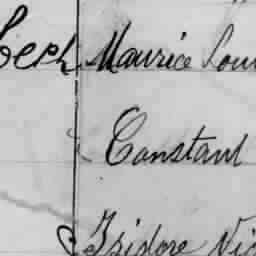 Maurice Lou
Constant
Isidore Vic